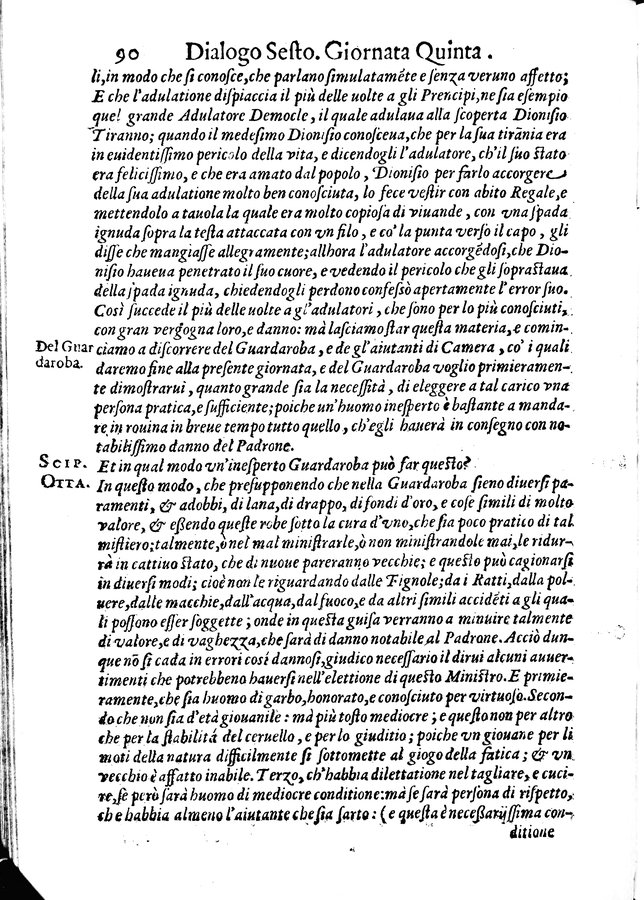 90 Dialogo Sesto. Giornata Quinta.
li, in modo che si conosce, che parlano simulatamẽte e senza veruno affetto;
E che l'adulatione dispiaccia il più delle uolte a gli Prencipi, ne sia esempio
quel grande Adulatore Democle, il quale adulaua alla scoperta Dionisio
Tiranno; quando il medesimo Dionisio conosceua, che per la sua tirãnia era
in euidentissimo pericolo della vita, e dicendogli l'adulatore, ch'il suo stato
era felicissimo, e che era amato dal popolo, Dionisio per farlo accorgere
della sua adulatione molto ben conosciuta, lo fece vestir con abito Regale, e
mettendolo a tauola la quale era molto copiosa di viuande, con vna spada
ignuda sopra la testa attaccata con vn filo, e co' la punta verso il capo, gli
disse che mangiasse allegramente; allhora l'adulatore accorgẽdosi, che Dio-
nisio haueua penetrato il suo cuore, e vedendo il pericolo che gli soprastaua
della spada ignuda, chiedendogli perdono confessò apertamente l'error suo.
Così succede il più delle uolte a gl'adulatori, che sono per lo più conosciuti,
con gran vergogna loro, e danno: mà lasciamo star questa materia, e comin-
Del Guar
daroba.
ciamo a discorrere del Guardaroba, e de gl'aiutanti di Camera, co' i quali
daremo fine alla presente giornata, e del Guardaroba voglio primieramen-
te dimostrarui, quanto grande sia la necessità, di eleggere a tal carico vna
persona pratica, e sufficiente; poiche un'huomo inesperto è bastante a manda-
re in rouina in breue tempo tutto quello, ch'egli hauerà in consegno con no-
tabilissimo danno del Padrone.
SCIP. Et in qual modo vn'inesperto Guardaroba può far questo?
OTTA. In questo modo, che presupponendo che nella Guardaroba sieno diuersi pa-
ramenti, & adobbi, di lana, di drappo, di fondi d'oro, e cose simili di molto
valore, & eßendo queste robe sotto la cura d'vno, che sia poco pratico di tal
mistiero; talmente, ò nel mal ministrarle, ò non ministrandole mai, le ridur-
rà in cattiuo stato, che di nuoue pareranno vecchie; e questo può cagionarsi
in diuersi modi; cioè non le riguardando dalle Tignole; da i Ratti, dalla pol-
uere, dalle macchie, dall'acqua, dal fuoco, e da altri simili accidẽti a gli qua-
li possono esser soggette; onde in questa guisa verranno a minuire talmente
di valore, e di vaghezza, che sarà di danno notabile al Padrone. Acciò dun-
que nõ si cada in errori così dannosi, giudico necessario il dirui alcuni auuer-
timenti che potrebbeno hauersi nell'elettione di questo Ministro. E primie-
ramente, che sia huomo di garbo, honorato, e conosciuto per virtuoso. Secon-
do che non sia d'età giouanile: mà più tosto mediocre; e questo non per altro
che per la stabilitá del ceruello, e per lo giuditio; poiche vn giouane per li
moti della natura difficilmente si sottomette al giogo della fatica; & vn
vecchio è affatto inabile. Terzo, ch'habbia dilettatione nel tagliare, e cuci-
re, se però sarà huomo di mediocre conditione: mà se sarà persona di rispetto,
che habbia almeno l'aiutante che sia sarto: (e questa è neceßarijssima con-
ditione